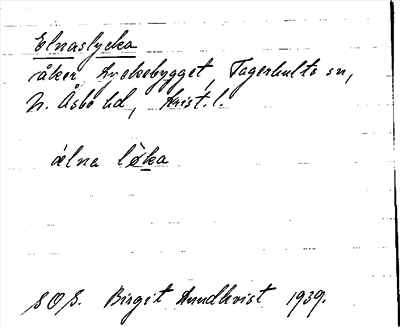 Elnaslycka
åker, Dyekebygget, Fagerhults sn,
N. Åsbo hd, Krist. l.
élna lø̀ka
SOS. Birgit Lundkvist 1939.